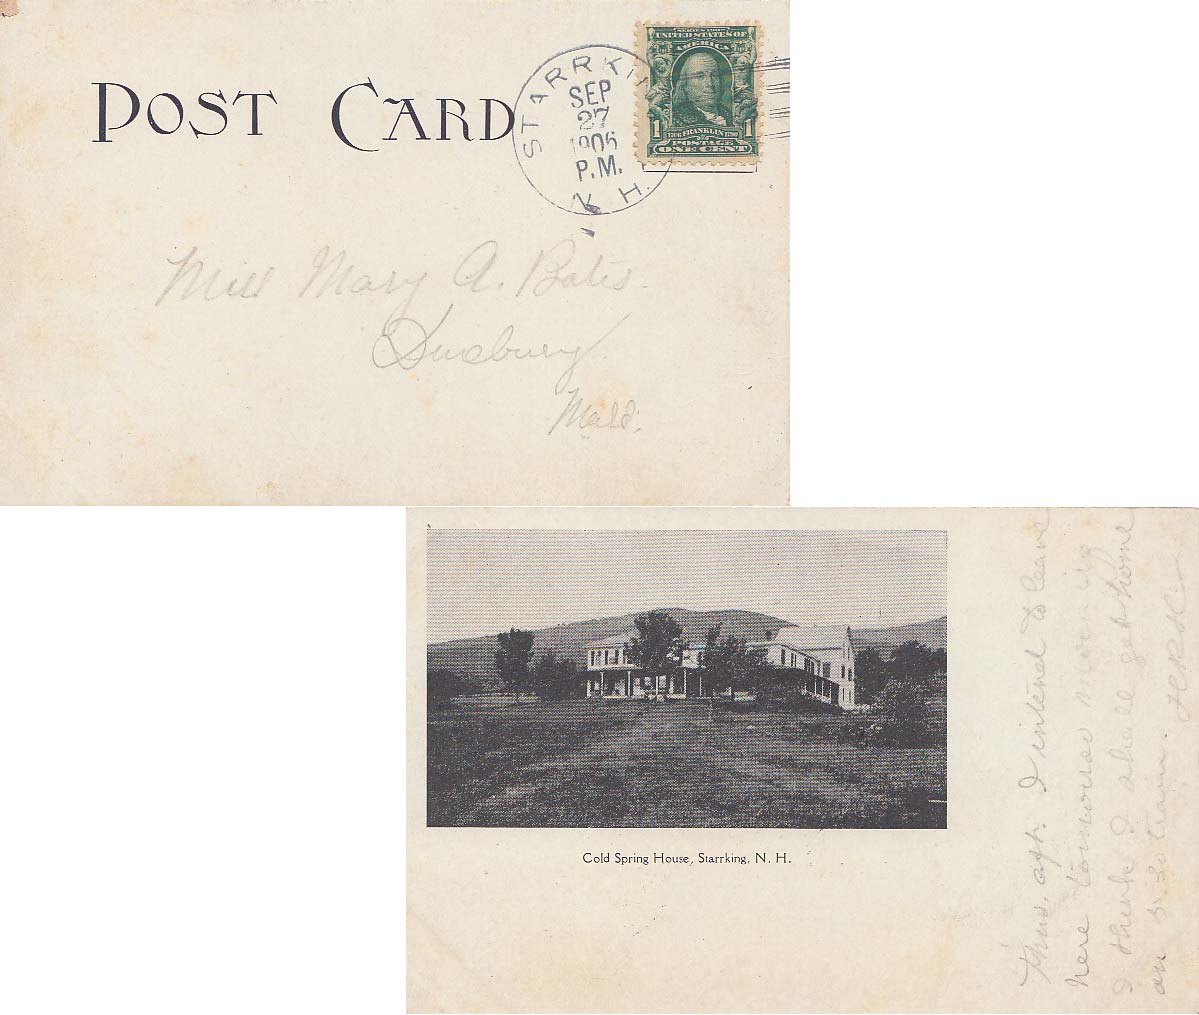 POST CARD
STARRKIN
SEP
27
1906
P.M.
N. H.
SERIES 1902
UNITED STATES OF
AMERICA
1 1706 FRANKLIN 1790 1
POSTAGE
ONE CENT
Miss Mary A. Bates.
Duxbury.
Mass.
Cold Spring House, Starrking, N. H.
Thus. aft. I intend to leave
here tomorrow morning
I think I shall get home
on 5.30 train.